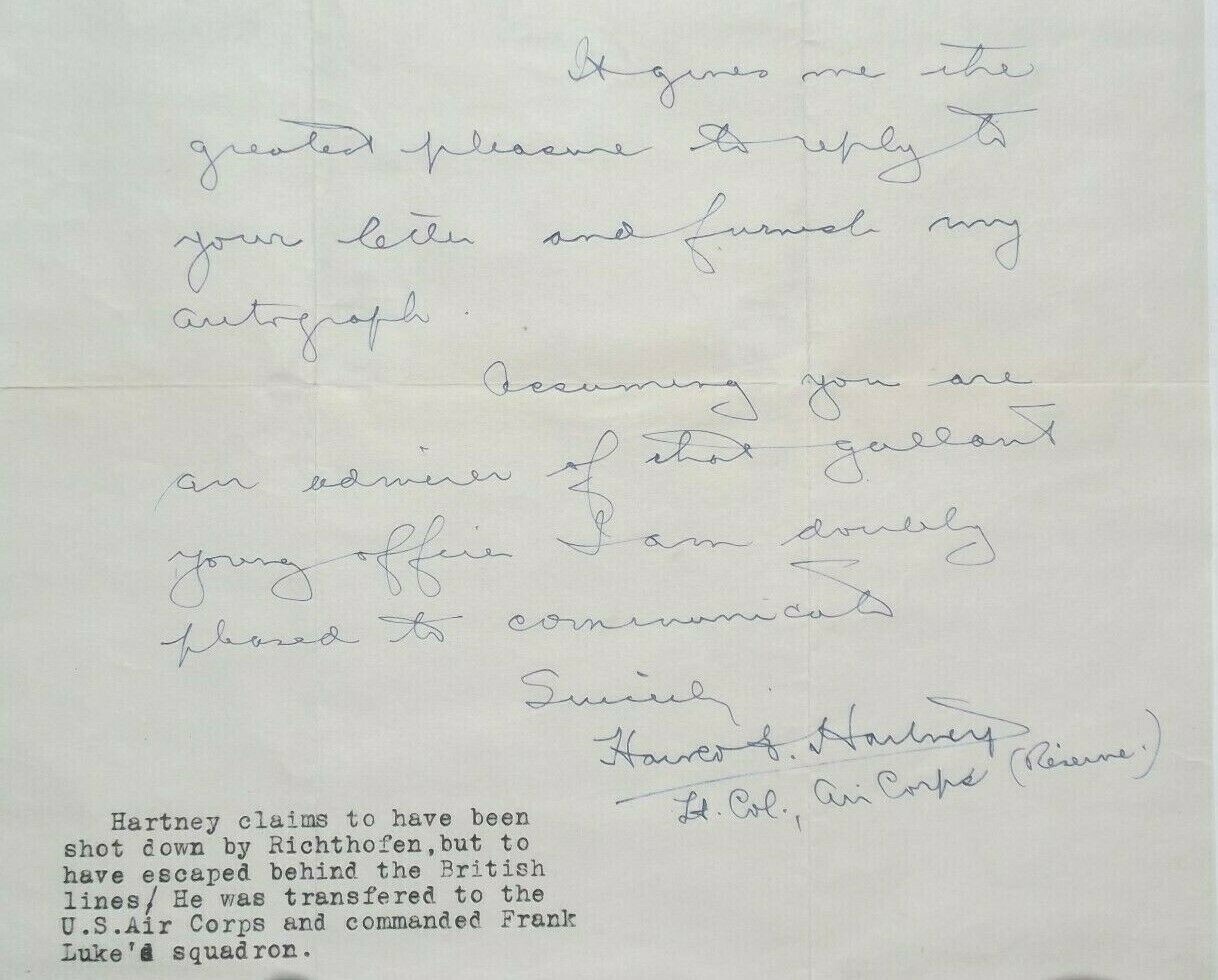 It gives me the
greatest pleasure to reply to
your letter and furnish my
autograph.
Assuming you are
an admirer of that gallant
young officer I am doubly
pleased to communicate
Sincerely
Harold E. Hartney
Lt. Col., Air Corps (Reserve.)
Hartney claims to have been
shot down by Richthofen,but to
have escaped behind the British
lines/ He was transfered to the
U.S.Air Corps and commanded Frank
Luke's squadron.